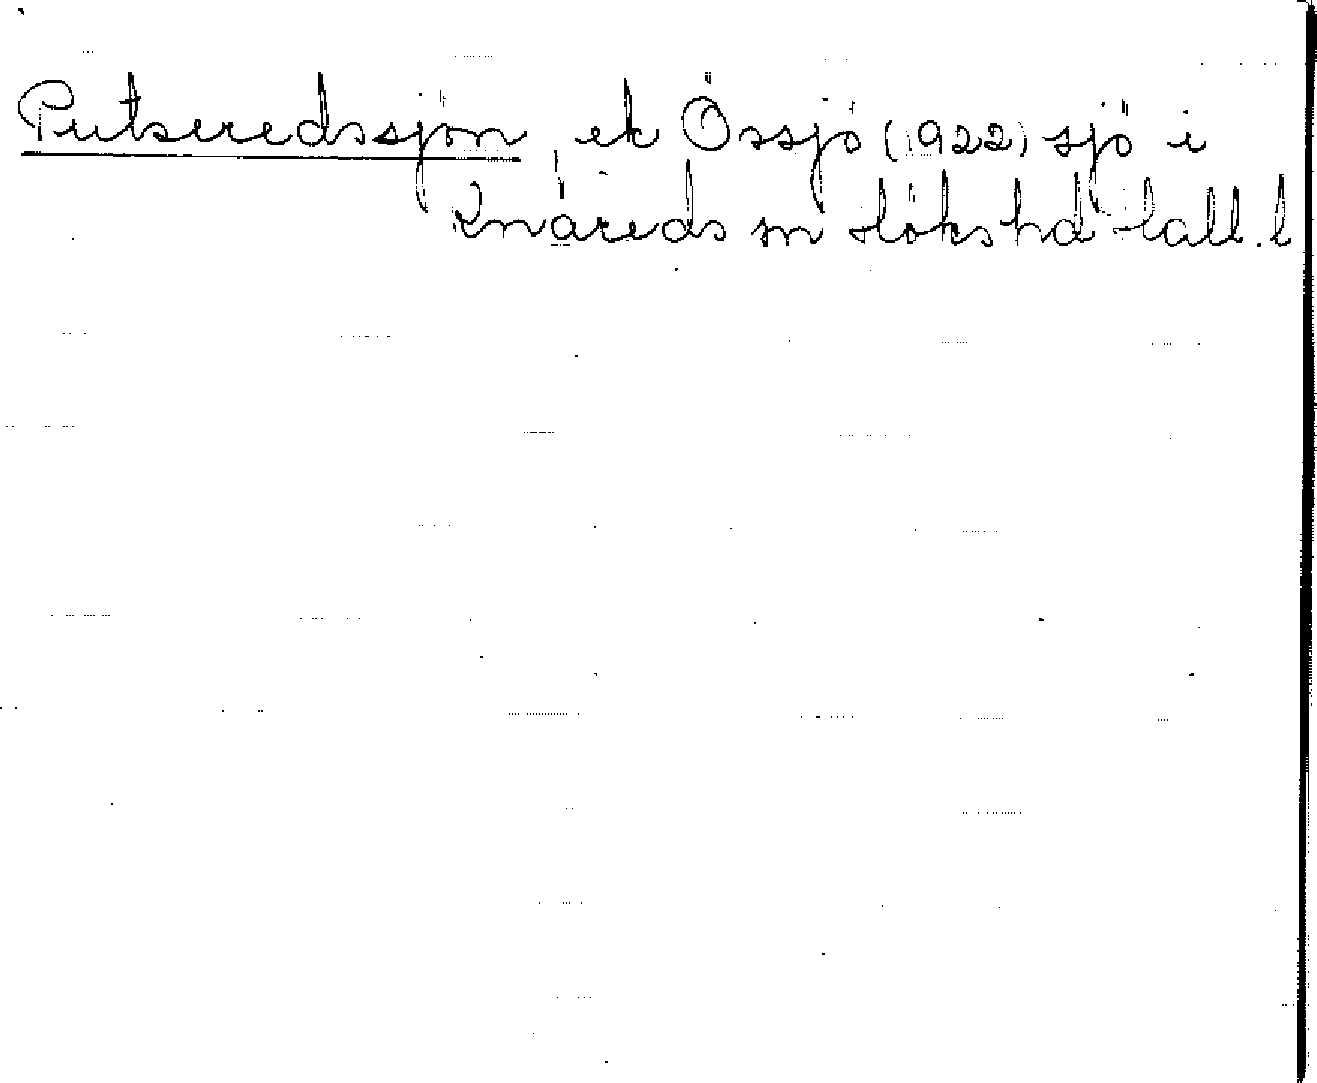 Putseredssjön, ek Össjö (1922) sjö i
Knäreds sn Höks hd Hall. l